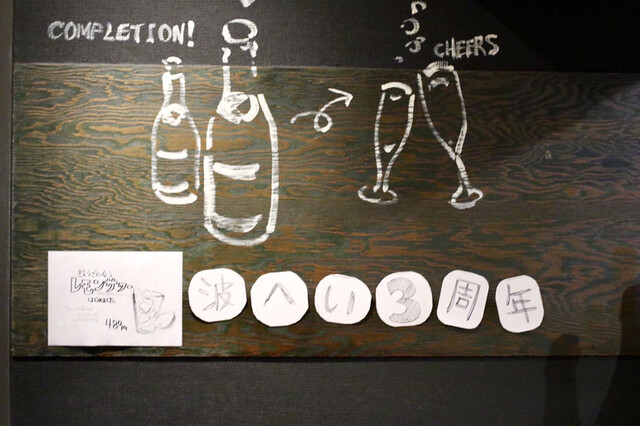 COMPLETION!
CHEERS
レモンサワー
はじめました
480円
波へい3周年